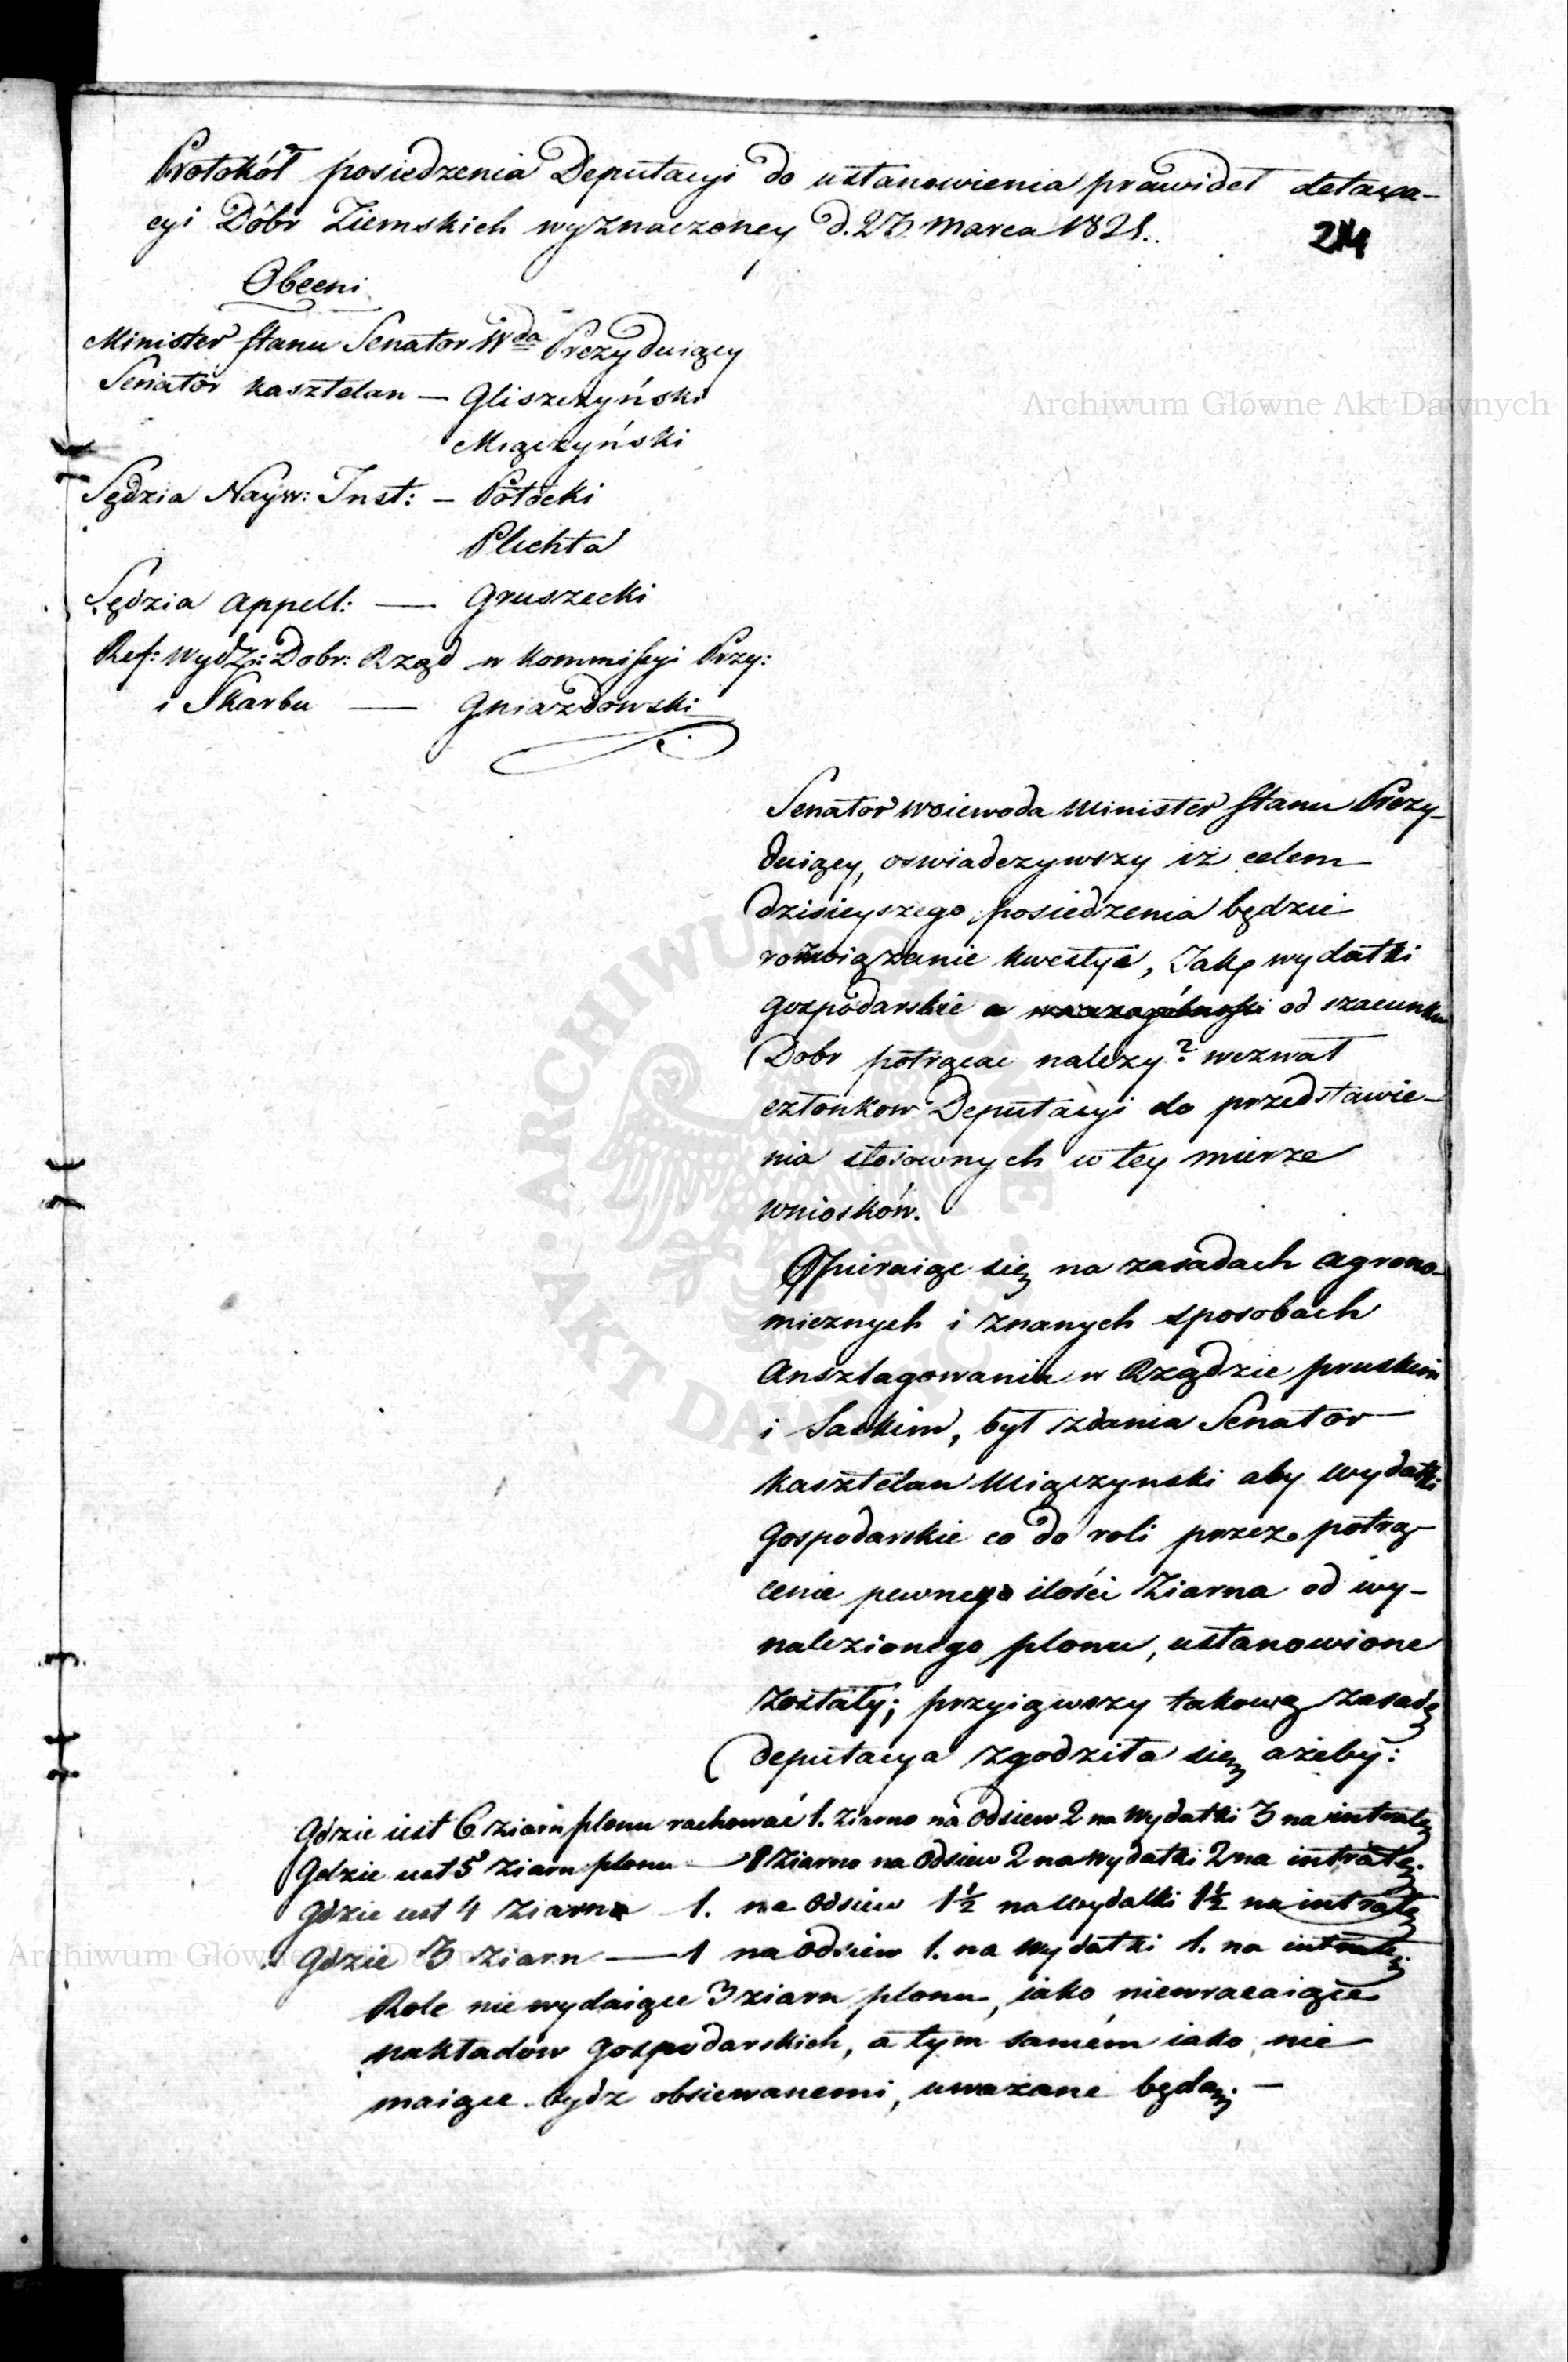 Protokół posiedzenia Deputacyi do ustanowienia prawideł detaxa-
cyi Dóbr Ziemskich wyznaczoney d. 23. Marca 1821.
214
Obecni
Minister Stanu Senator Wda Prezyduiący
Senator Kasztelan — Gliszczyński
Miączyński
Archiwum Główne Akt Dawnych
Sędzia Nayw: Inst: — Potocki
Plichta
Sędzia Appell: — Gruszecki
Ref: Wydz: Dobr: Rząd w Kommissyi Przy:
i Skarbu — Gniazdowski
Senator Woiewoda Minister Stanu Prezy-
duiący, oswiadczywszy iż celem
dzisieyszego posiedzenia będzie
rozwiązanie kwestyi, Jakie wydatki
gospodarskie od szacunku
Dobr potrącac nalezy? wezwał
członkow Deputacyi do przedstawie-
nia stosownych w tey mierze
wniosków.
Opieraiąc się na zasadach agrono-
micznych i znanych sposobach
Anszlagowania w Rządzie pruskim
i Saskim, był zdania Senator
Kasztelan Miączynski aby wydatki
gospodarskie co do roli przez potrą-
cenie pewney ilości Ziarna od wy-
nalezionego plonu, ustanowione
zostały; przyiąwszy takową zasadę
deputacya zgodziła się ażeby:
Gdzie iest 6 ziarn plonu rachować 1. Ziarno na Odsiew 2 na Wydatki 3 na intratę
Gdzie iest 5 Ziarn plonu — 1 Ziarno na Odsiew 2 na Wydatki 2 na intratę.
Gdzie iest 4 Ziarna 1. na Odsiew 1½ na wydatki 1½ na intratę
Gdzie 3 Ziarn — 1 na Odsiew 1. na Wydatki 1. na intratę.
Archiwum Główne Akt Dawnych
Role nie wydaiące 3 ziarn plonu, iako niewracaiące
nakładów gospodarskich, a tym samém iako nie
maiące bydz obsiewanemi, uwazane będą. —
ARCHIWUM GŁÓWNE · AKT DAWNYCH ·